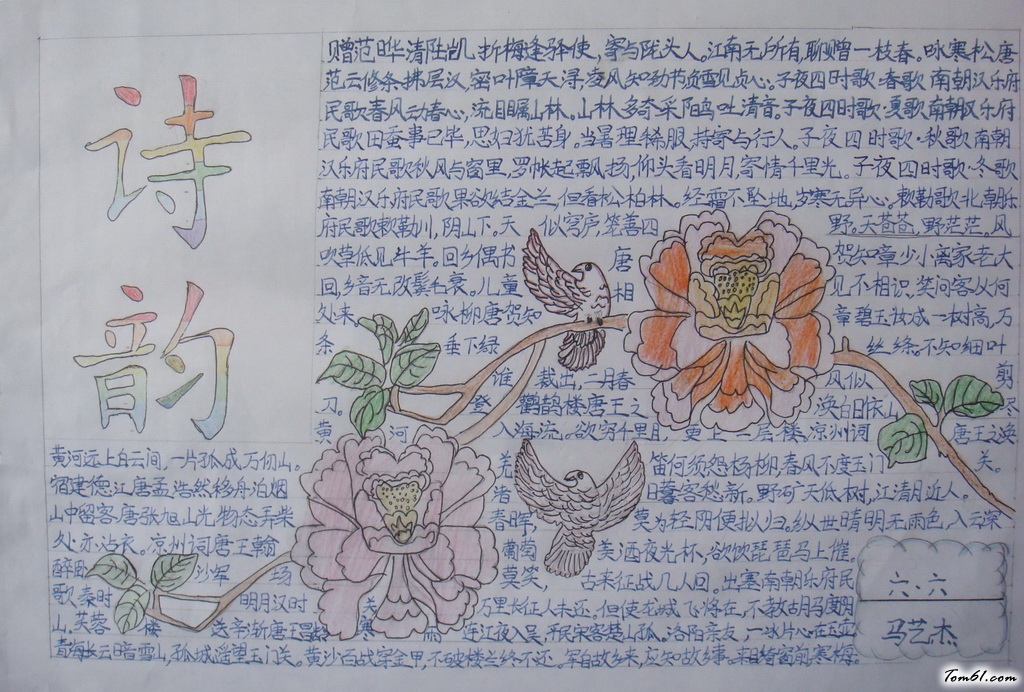 诗韵
赠范晔清陆凯，折梅逢驿使，寄与陇头人。江南无所有，聊赠一枝春。咏寒松唐
范云修条拂层汉，密叶障天浔，凌风知劲节，负雪见贞心。子夜四时歌·春歌南朝汉乐府
民歌春风动春心，流目瞩山林。山林多奇采，阳鸟吐清音。子夜四时歌·夏歌南朝汉乐府
民歌田蚕事已毕，思妇犹苦身。当暑理絺服，持寄与行人。子夜四时歌·秋歌南朝
汉乐府民歌秋风与窗里，罗帐起飘扬，仰头看明月，寄情千里光。子夜四时歌·冬歌
南朝汉乐府民歌果欲结金兰，但看松柏林。经霜不坠地，岁寒无异心。敕勒歌北朝乐
府民歌敕勒川，阴山下。天似穹庐，笼盖四野。天苍苍，野茫茫。风
吹草低见牛羊。回乡偶书唐贺知章少小离家老大
回，乡音无改鬓毛衰。儿童相见不相识，笑问客从何
处来。咏柳唐贺知章碧玉妆成一树高，万
条垂下绿丝绦。不知细叶
谁裁出，二月春风似剪
刀。登鹳鹊楼唐王之涣白日依山尽
黄河入海流。欲穷千里目，更上一层楼。凉州词唐王之涣
黄河远上白云间，一片孤城万仞山。羌笛何须怨杨柳，春风不度玉门关。
宿建德江唐孟浩然移舟泊烟渚日暮客愁新。野旷天低树，江清月近人。
山中留客唐张旭山光物态弄春晖，莫为轻阴便拟归。纵世晴明无雨色，入云深
处亦沾衣。凉州词唐王翰葡萄美酒夜光杯，欲饮琵琶马上催。
醉卧沙场莫笑，古来征战几人回。出塞南朝乐府民
歌秦时明月汉时关万里长征人未还。但使龙城飞将在，不教胡马度阴
山。芙蓉楼送辛渐唐王昌龄寒雨连江夜入吴，平明宋客楚山孤。洛阳亲友，一冰片心在玉
青海长云暗雪山，孤城遥望玉门关。黄沙百战穿金甲，不破楼兰终不还。军自故乡来，应知故乡事。来日绮窗前，寒梅
六.六
马艺杰
Tom61.com